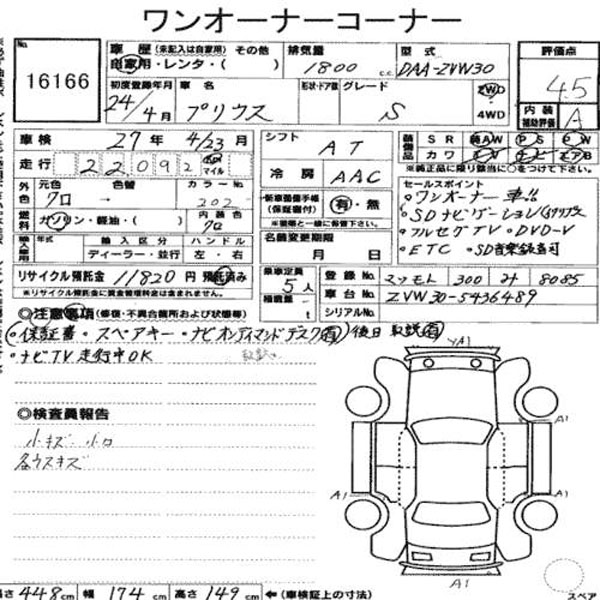 ワンオーナーコーナー
No. 16166
車歴 (未記入は自家用) その他 排気量 型式 評価点
自家用・レンタ・( ) 1800 c.c. DAA-ZVW30 4.5
初度登録年月 車名 形状・ドア数 グレード 2WD 内装
24/4月 プリウス S 4WD 補助評価 A
車検 27年 4/23月 シフト AT 装備品 SR 純AW PS PW
走行 22,092 km マイル 冷房 AAC カワ ナビ TV エアB
※純正品に限り該当に○をつけて下さい。
外色 元色 色替 カラーNo. 新車整備手帳(保証書付) 有・無 セールスポイント
クロ - 202 ※車両と一緒に保管下さい。 ・ワンオーナー車!!
燃料 ガソリン・軽油・( ) 内装色 クロ ・SDナビゲーション
輸入車用 年式 輸入区分 ハンドル 名義変更期限 ・フルセグTV・DVD-V
ディーラー・並行 左・右 月 日 ・ETC ・SD音楽録音可
リサイクル預託金 11820円 預託済み 乗車定員 5人 登録No. マツモト 300 み 8085
※リサイクル預託金に資金管理料金は含まれません。 積載量 t 車台No. ZVW30-5436489
シリアルNo.
◎注意事項 (修復・不具合箇所および状態等)
・保証書・スペアキー・ナビオンデマンドデスク(有) 後日
・ナビTV走行中OK
YA1
◎検査員報告
A1
小キズ 小凹
各ウスキズ
A1 A1
A1
長さ 448cm 幅 174cm 高さ 149cm ←(車検証上の寸法) スペア